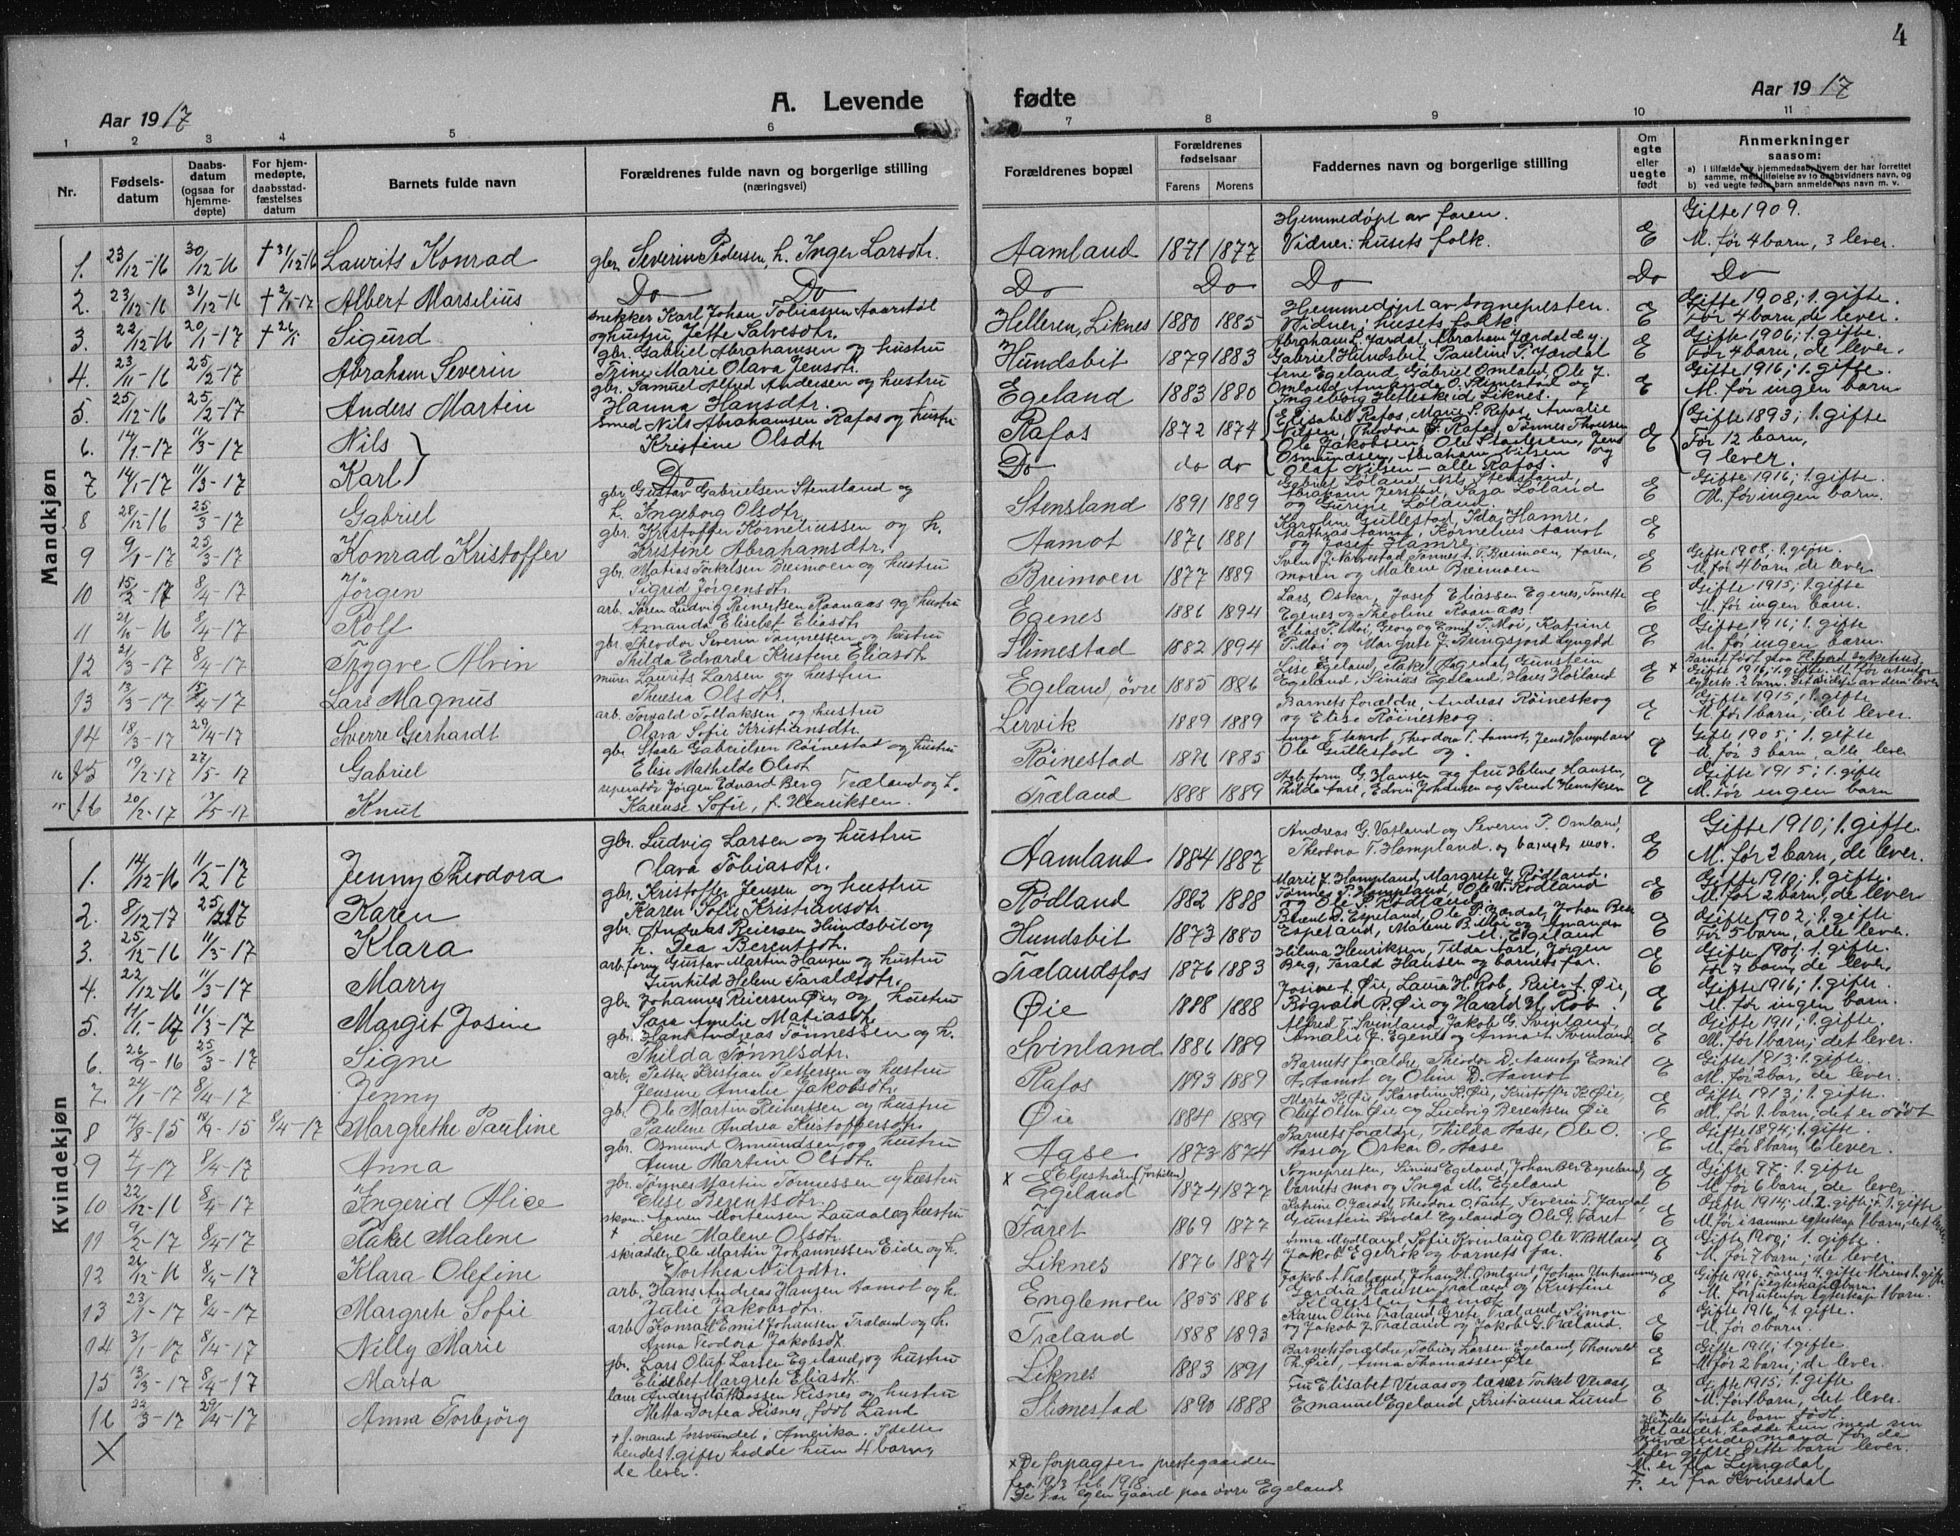 4
Aar 1917
A. Levende fødte
Aar 1917
1 2 3 4 5 6 7 8 9 10 11
Nr.
Fødsels-datum
Daabs-datum (ogsaa for hjemme-døpte)
For hjem-medøpte, daabsstad-fæstelses datum
Barnets fulde navn
Forældrenes fulde navn og borgerlige stilling (næringsvei)
Forældrenes bopæl
Forældrenes fødselsaar
Farens Morens
Faddernes navn og borgerlige stilling
Om egte eller uegte født
Anmerkninger saasom:
a) I tilfælde av hjemmedaab, hvem der har forrettet samme, med tilføielse av to daabsvidners navn, og
b) ved uegte fødte barn anmelderens navn m. v.
Mandkjøn
1. 23/12-16 30/12-16 † 31/12-16 Laurits Konrad gbr. Severin Pedersen, h. Inger Larsdtr. Aamland 1871 1877 Hjemmedøpt av faren. Vidner: husets folk. E Gifte 1909. M. før 4 barn, 3 lever.
2. 23/12-16 31/12-16 † 2/1-17 Albert Marselius Do Do Do Do Do Do Do Do
3. 22/12-16 20/1-17 † 26/1 Sigurd snekker Karl Johan Tobiassen Aarstøl og hustru Jette Salvesdtr. Helleren, Liknes 1880 1885 Hjemmedøpt av sognepresten. Vidner: husets folk. E Gifte 1908; 1. gifte. Før 4 barn, de lever.
4. 23/11-16 25/2-17 Abraham Severin gbr. Gabriel Abrahamsen og hustru Trine Marie Olava Jensdtr. Hundsbit 1879 1883 Gabriel Hundsbit, Pauline T. Jærdal E Gifte 1906; 1. gifte. Før 4 barn, de lever.
5. 25/12-16 25/2-17 Anders Martin gbr. Samuel Alfred Andersen og hustru Hanna Hansdtr. Egeland 1883 1880 Arne Egeland, Gabriel Omland, Ole J. Omland, Amanda O. Slimestad og Ingeborg Helleskeid Liknes. E Gifte 1916; 1. gifte. M. før ingen barn
6. 14/1-17 11/3-17 Nils smed Nils Abrahamsen Rafos og hustru Kristine Olsdtr Rafos 1872 1874 Elisabeth Rafos, Marie S. Rafos, Amalie Nilsen, Theodora J. Rafos, Tønnes Thorsen E Gifte 1893; 1. gifte Før 12 barn, 9 lever.
7 14/1-17 11/3-17 Karl Do Do do do Ole Jakobsen, Ole Staalesen, Jens Osmundsen, Abraham Nilsen og Olaf Nilsen – alle Rafos.
8 28/12-16 25/3-17 Gabriel gbr. Gustav Gabrielsen Stensland og h. Ingeborg Olsdtr. Stensland 1891 1889 Gabriel Løland, Nils Stensland, Abraham Jerstad, Saja Løland og Gurine Løland. E Gifte 1916; 1. gifte. M. før ingen barn.
9 9/1-17 25/3-17 Konrad Kristoffer gbr. Kristoffer Korneliussen og h. Kristine Abrahamsdtr. Aamot 1876 1881 Karoline Gullestad, Ida Hamre, Mathias Aamot, Kornelius Aamot og Josef Hamre. E
10 15/2-17 8/4-17 Jörgen gbr. Matias Torkelsen Breimoen og hustru Sigrid Jørgensdtr. Breimoen 1877 1889 faren, moren og Malene Breimoen E Gifte 1908; 1. gifte. M. før 4 barn, de lever
11 8/4-17 Rolf arb. Søren Ludvig Reinertsen Raanaas og hustru Amanda Elisebet Eliasdtr Egenes 1886 1894 Lars, Oskar, Josef Eliassen Egenes, Tonette Egenes og Theoline Raanaas. E Gifte 1915; 1. gifte M. før ingen barn.
12 21/3-17 8/4-17 Tryggve Alvin gbr. Theodor Severin Tønnessen og hustru Thilda Edvarda Kristene Eliasdtr Slimestad 1882 1894 Elias P. Moi, Georg og Emil T. Moi, Katrine P. Moi og Margrete J. Bringsjord Lyngdal E Gifte 1916; 1. gifte M. før ingen barn.
13 13/3-17 15/4-17 Lars Magnus murer Laurits Larsen og hustru Theresia Olsdtr. Egeland, øvre 1885 1886 Lise Egeland, Rakel Øygedal, Gunstein Egeland, Sinius Egeland, Hans Hörland E
14 18/3-17 29/4-17 Sverre Gerhardt arb. Torvald Tollaksen og hustru Olava Sofie Kristiansdtr. Lervik 1889 1889 Barnets forældre, Andreas Röineskog og Elise Röineskog. E Gifte 1915; 1. gifte. M. før 1 barn; det lever.
16 15 19/2-17 27/5-17 Gabriel gbr Staale Gabrielsen Röinestad og hustru Elise Mathilde Olsdtr Röinestad 1876 1885 Theodora T. Aamot, Jens Hompland Ole Gullestad og E Gifte 1905; 1. gifte. M. før 3 barn. alle lever
15 16 20/2-17 17/5-17 Knut reperatör Jörgen Edvard Berg Træland og h. Karense Sofie, f. Henriksen. Træland 1888 1889 Arb.form. G. Hansen og fru Helene Hansen, Thilda Aase, Edvin Johansen og Svend Henriksen E Gifte 1915; 1. gifte M. før ingen barn
Kvindekjøn
1. 14/12-16 11/2-17 Jenny Theodora gbr. Ludvig Larsen og hustru Olava Tobiasdtr. Aamland 1884 1887 Andreas G. Vatland og Severin P. Omland, Theodora T. Hompland. og barnets mor. E Gifte 1910; 1. gifte. M. før 2 barn, de lever.
2. 8/12-17 25/2-17 Karen gbr. Kristoffer Jensen og hustru Karen Sofie Kristiansdtr. Rødland 1882 1888 Marie J. Hompland, Margrete J. Rødland. Tønnes P. Hompland, Ole V. Rødland og Ole S. Rødland E Gifte 1910; 1. gifte. M. før 2 barn, de lever
3. 25/12-16 11/3-17 Klara gbr. Andreas Reiersen Hundsbit og h. Dea Berentsdtr. Hundsbit 1873 1880 Berent D. Espeland, Ole T. Jærdal, Johan Ber. Espeland, Malene B. Moi og Amanda M. Egeland E Gifte 1902; 1. gifte. Før 5 barn, alle lever.
4. 22/12-16 11/3-17 Marry arb.form. Gustav Martin Hansen og hustru Gunhild Helene Taraldsdtr. Trælandsfos 1876 1883 Hilma Henriksen, Tilda Aase, Jörgen Berg, Tarald Hansen og barnets far. E Gifte 1901; 1. gifte. Før 7 barn, de lever.
5. 14/1-17 11/3-17 Margit Josine gbr. Johannes Reiersen Øie, og hustru Sara Amelie Matiasdtr Øie 1888 1888 Josine A. Øie, Laura H. Rob, Reier A. Øie, Rögvald R. Øie og Harald H. Rob. E Gifte 1916; 1. gifte M. før ingen barn.
6. 26/9-16 25/3-17 Signe gbr. Hans Andreas Tönnessen og h. Thilda Tønnesdtr. Svinland 1886 1889 Alfred T. Svinland, Jakob G. Svinland, Amalie J. Egenes og Anna T. Svinland E Gifte 1911; 1. gifte. M. før 1 barn; det lever.
7. 24/1-17 8/4-17 Jenny arb. Petter Kristian Pettersen og hustru Jensine Amalie Jakobsdtr. Rafos 1893 1889 Barnets forældre, Theodor D. Aamot, Emil H. Aamot og Oline D. Aamot E Gifte 1913; 1. gifte M. før 2 bar, de lever.
8 17/8-15 19/9-15 8/4-17 Margrethe Pauline gb. Ole Martin Reinertsen og hustru Pauline Andrea Kristoffersdtr. Øie 1884 1889 Marta K. Øie, Karoline K. Øie, Kristoffer K. Øie, Oluf Olsen Øie og Ludvig Berentsen Øie E Gifte 1913; 1. gifte. M. før 1 barn, det er dødt
9 4/1-17 8/4-17 Anna gbr. Osmund Osmundsen og hustru Anne Martine Olsdtr. Aase 1873 1874 Barnets forældre, Thilda Aase, Ole O. Aase og Oskar O. Aase E Gifte 1894; 1. gifte M. før 8 barn, 6 lever.
10 22/12-16 8/4-17 Ingerid Alice gbr. Tønnes Martin Tønnessen og hustru Elise Berentsdtr. Egeland 1874 1877 Sognepresten, Sinius Egeland, Johan Ber. Espeland, barnets mor og Inga M. Egeland E M. før 6 barn, de lever.
11 9/2-17 8/4-17 Rakel Malene skom. Mortensen Laudal og hustru + Lene Malene Olsdtr. Faret 1869 1877 Ole G. Faret E
12 26/12-16 8/4-17 Klara Olefine skrædder Ole Martin Johannessen Eide og h. Dorthea Nilsdtr. Liknes 1876 1874 Jakob Egebrok og barnets far. E M. før 7 barn; de lever.
13 23/1-17 8/4-17 Margrete Sofie arb. Hans Andreas Hansen Aamot og h. Julie Jakobsdtr. Englemoen 1855 1886 E
14 3/1-17 8/4-17 Nelly Marie arb. Konrad Emil Johansen Træland og h. Anna Teodora Jakobsdtr. Træland 1888 1893 Karen Oline Træland, Grete Træland, Simon og Jakob J. Træland og Jakob G. Træland. E Gifte 1916; 1. gifte. M. før 0 barn.
15 13/3-17 8/4-17 Marta gbr. Lars Oluf Larsen Egeland, og hustru Elisebet Margrete Eliasdtr. Liknes 1883 1891 Barnets forældre, Tobias Larsen Egeland, Thorvald Th. Øie, Anna Thomassen Øie E M. før 2 barn; de lever.
16 22/3-17 29/4-17 Anna Torbjørg lærer Anders Mathiassen Risnes og hustru Metta Dortea Risnes, født Lund Slimestad 1890 1888 Fru Elisabet Veraas og lærer Torkel Veraas, Emanuel Egeland, Kristianna Lund E Gifte 1915; 1. gifte M. før 1 barn, det lever.
X
+ 1. mand forsvundet i Amerika. I dette hendes 1. gifte hadde hun 4 barn, de lever.
x De forpagter prestegaarden fra 1913 til 1918. De har egen gaard paa øvre Egeland
Hendes første barn født. Det andet hadde hun med sin nuværende mand før de blev gifte. Dette barn lever. M. er fra Lyngdal F. er fra Kvinesdal